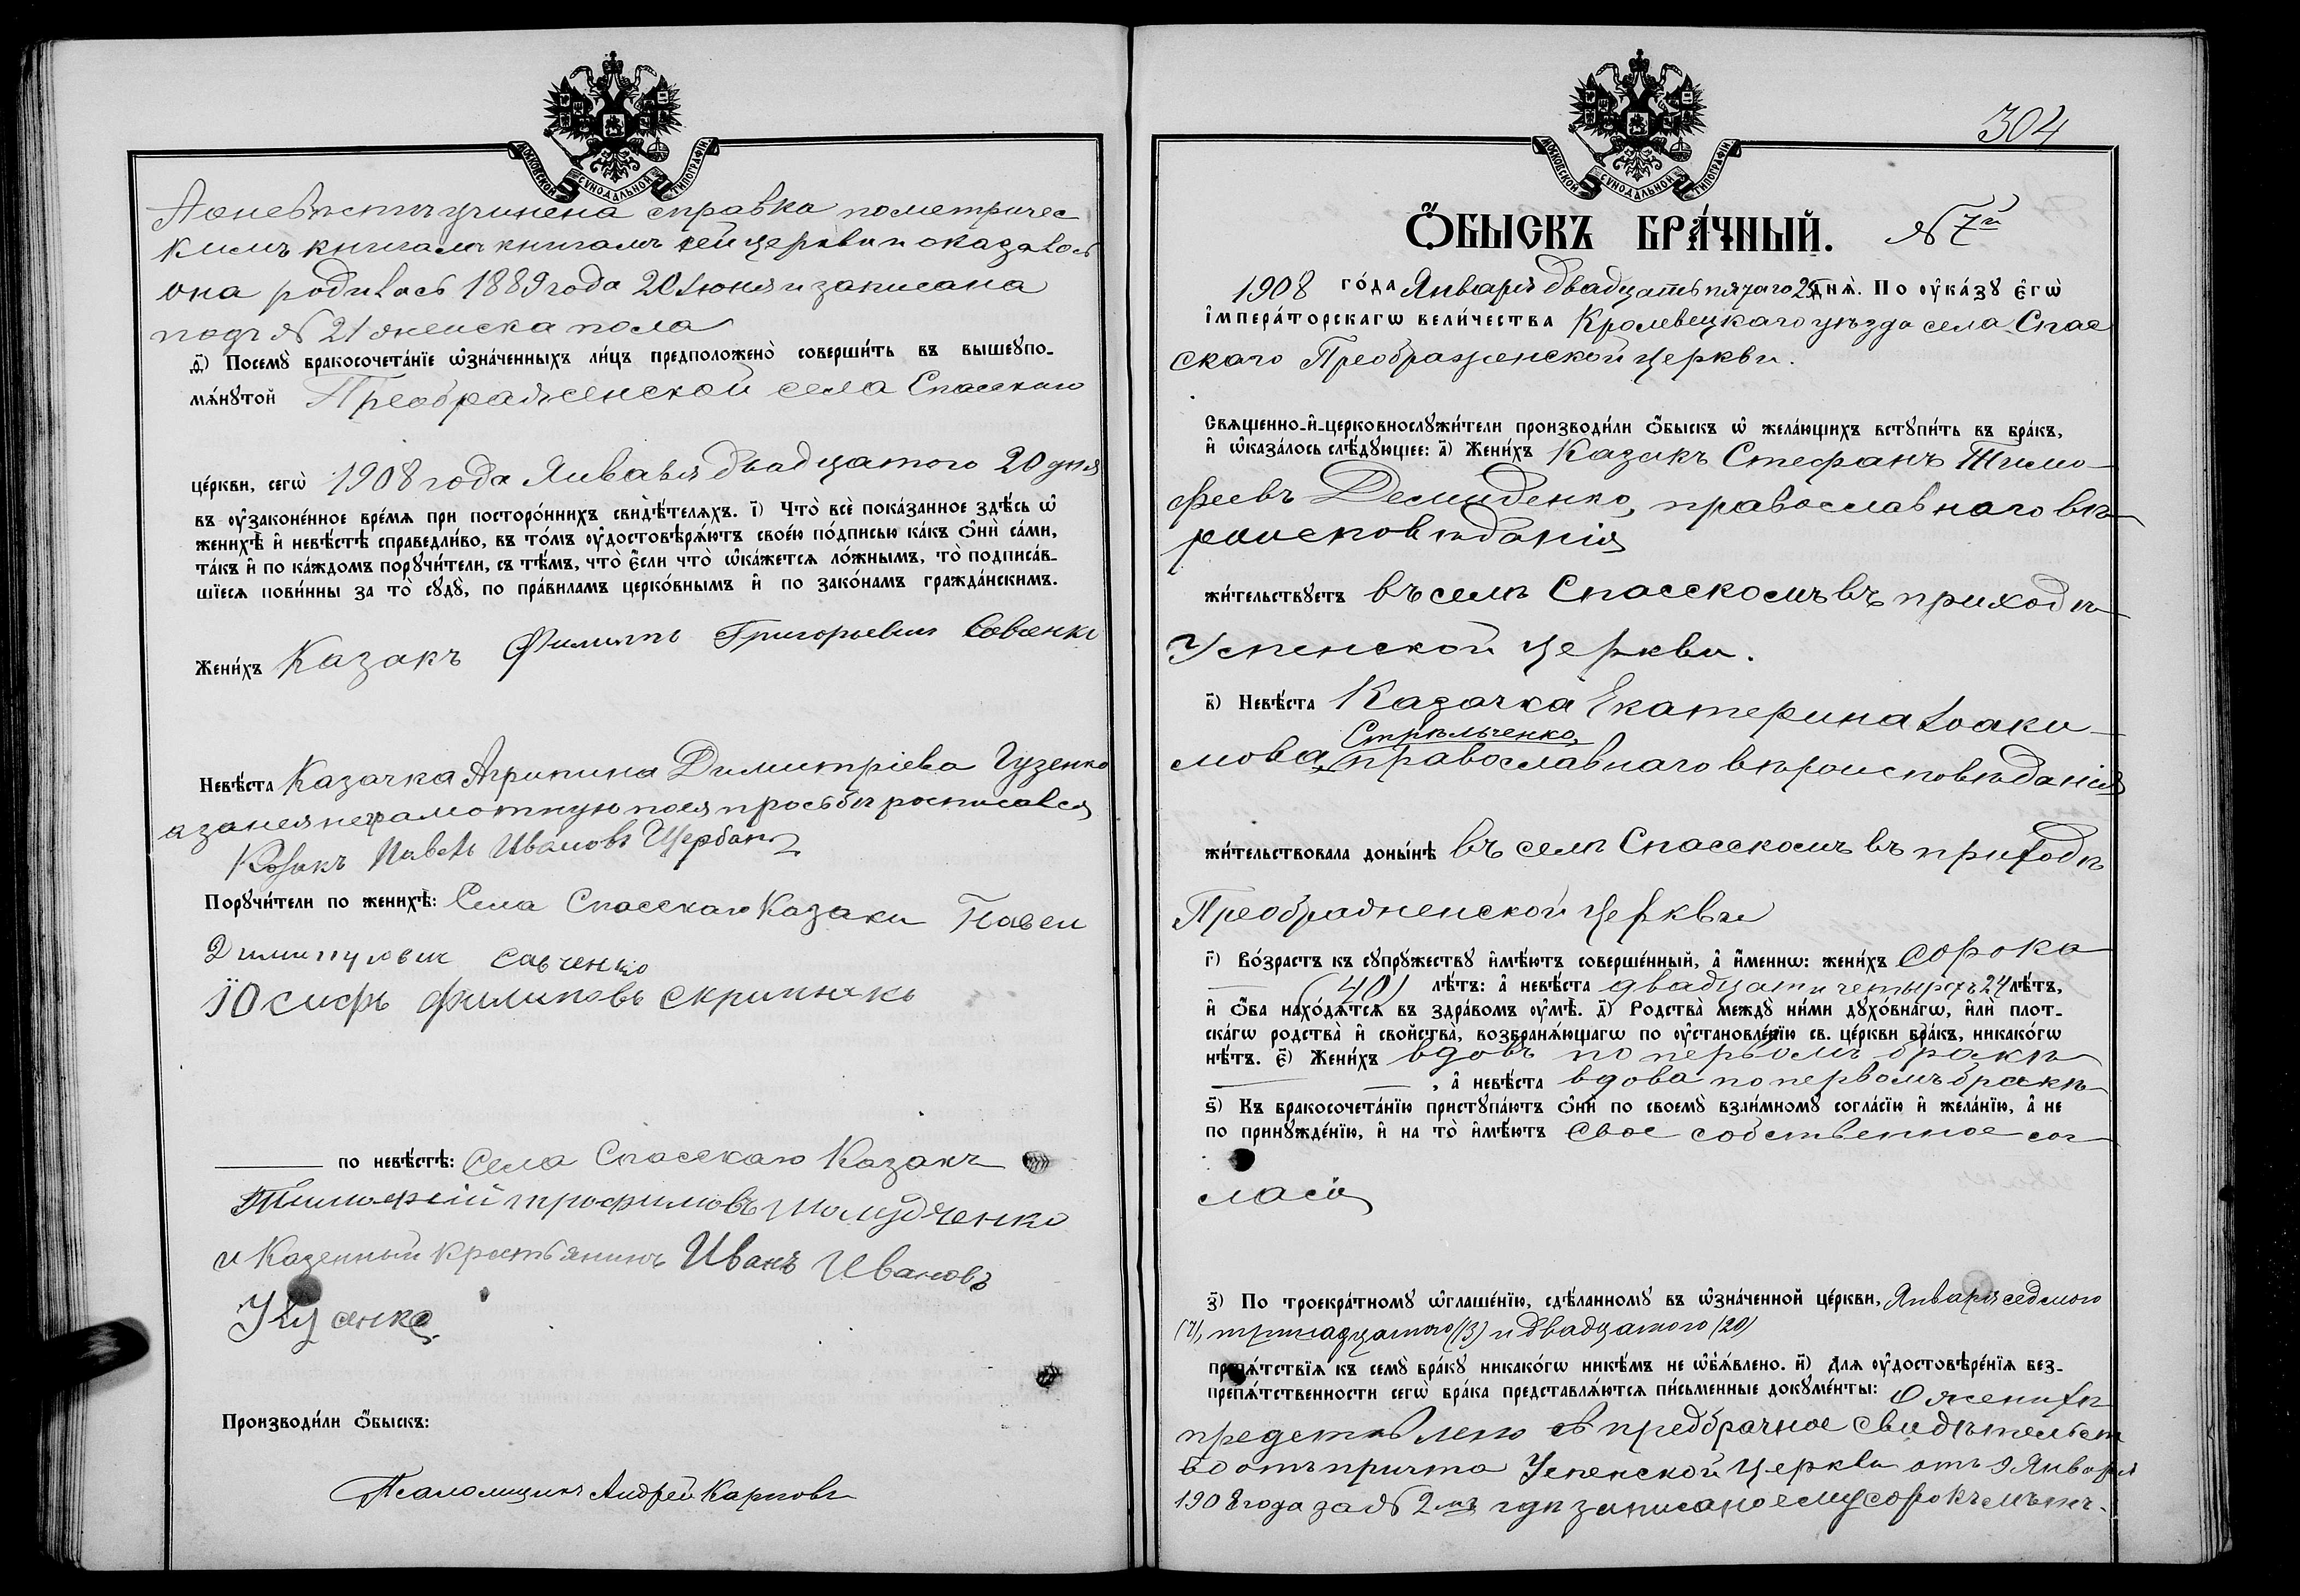 МОСКОВСКОЙ СѴНОДАЛЬНОЙ ТИПОГРАФІИ
А о невѣстѣ учинена справка по метричес
кимъ книгамъ книгамъ сей церкви и оказалось
она родилась 1889 года 20 Іюня и записана
подъ № 21 женска пола
д҃) Посемꙋ бракосочета́нїе ѡ҆зна́ченныхъ ли́цъ предположено̀ соверши́ть въ вышеꙋпо-
мѧ́нꙋтой Преображенской села Спасскаго
це́ркви, сегѡ̀ 1908 года Января двадцатого 20 дня
въ ᲂу҆законе́нное вре́мѧ при посторо́ннихъ свидѣ́телѧхъ. і҃) Что̀ всѐ пока́занное здѣ́сь ѡ҆
женихѣ̀ и҆ невѣ́стѣ справедли́во, въ то́мъ ᲂу҆достовѣрѧ́ютъ свое́ю по́дписью ка́къ ѻ҆нѝ са́ми,
та́къ и҆ по ка́ждомъ порꙋчи́тели, съ тѣ́мъ, что̀ є҆́сли что̀ ѡ҆ка́жетсѧ ло́жнымъ, то̀ подписа́в-
шїесѧ пови́нны за то̀ сꙋдꙋ̀, по пра́виламъ церко́внымъ и҆ по зако́намъ гражда́нскимъ.
Жени́хъ Казакъ Филиппъ Григорьевич Савенко
Невѣ́ста Казачка Агрипина Димитріева Гузенко
а за нея неграмотную по ея просьбѣ росписался
Козакъ Павелъ Ивановъ Щербакъ
Порꙋчи́тели по женихѣ̀: Села Спасскаго Казаки Павел
Димитрович Савченко
Іосифъ Филиповъ Скрипняко
по невѣ́стѣ: Села Спасскаго Казакъ
Тимофѣй Трофимовъ
и Казенный Крестьянинъ Иванъ Ивановъ
Производи́ли ѻ҆́быскъ:
Псаломщикъ Андрей Карповъ
304
МОСКОВСКОЙ СѴНОДАЛЬНОЙ ТИПОГРАФІИ
Ѻ҆́БЫСКЪ БРА́ЧНЫЙ. № 7й
1908 го́да Января двадцать пятаго 25 днѧ̀. По ᲂу҆ка́зꙋ є҆гѡ̀
і҆мпера́торскагѡ вели́чества Кролевецкаго уѣзда села Спас
скаго Преображенской церкви.
Свѧщенно-и҆-церковнослꙋжи́тели производи́ли ѻ҆́быскъ ѡ҆ жела́ющихъ встꙋпи́ть въ бра́къ,
и҆ ѡ҆каза́лось слѣ́дꙋющее: а҃) Жени́хъ Казакъ Стефанъ Тимо-
феевъ Демиденко, православнаго вѣ-
роисповѣданія
жи́тельствꙋетъ въ селѣ Спасскомъ въ приходѣ
Успенской церкви.
в҃) Невѣ́ста Казачка Екатерина Іоаки-
Стрѣльченко,
мова, православнаго вѣроисповѣданія
жи́тельствовала доны́нѣ въ селѣ Спасскомъ въ приходѣ
Преображенской церкви
г҃) Во́зрастъ къ сꙋпрꙋ́жествꙋ и҆мѣ́ютъ соверше́нный, а҆ и҆́меннѡ: жени́хъ сорока
(40) лѣ́тъ: а҆ невѣ́ста двадцати четырехъ 24 лѣ́тъ,
и҆ ѻ҆́ба нахо́дѧтсѧ въ здра́вомъ ᲂу҆мѣ̀. д҃) Родства̀ междꙋ̀ ни́ми дꙋхо́внагѡ, и҆лѝ плот-
ска́гѡ родства̀ и҆ свойства̀, возбранѧ́ющагѡ по ᲂу҆становле́нїю св. це́ркви бра́къ, никако́гѡ
нѣ́тъ. є҃) Жени́хъ вдовъ по первомъ бракѣ
, а҆ невѣ́ста вдова по первомъ бракѣ
ѕ҃) Къ бракосочета́нїю пристꙋпа́ютъ ѻ҆нѝ по своемꙋ̀ взаи́мномꙋ согла́сїю и҆ жела́нїю, а҆ не
по принꙋжде́нїю, и҆ на то̀ и҆мѣ́ютъ свое собственное сог
ласіе
з҃) По троекра́тномꙋ ѡ҆глаше́нїю, сдѣ́ланномꙋ въ ѡ҆зна́ченной це́ркви, Января седмого
(7), тринадцатого (13) и двадцатого (20)
препѧ́тствїѧ къ семꙋ̀ бра́кꙋ никако́гѡ никѣ́мъ не ѡ҆б̾ѧ́влено. и҃) Длѧ ᲂу҆достовѣре́нїѧ без-
препѧ́тственности сегѡ̀ бра́ка представлѧ́ютсѧ пи́сьменные докꙋме́нты: О женихѣ
представлено предбрачное свидѣтельст
во отъ причта Успенской церкви отъ 9 Января
1908 года за № 2мъ гдѣ записано ему сорокъ лѣтъ.